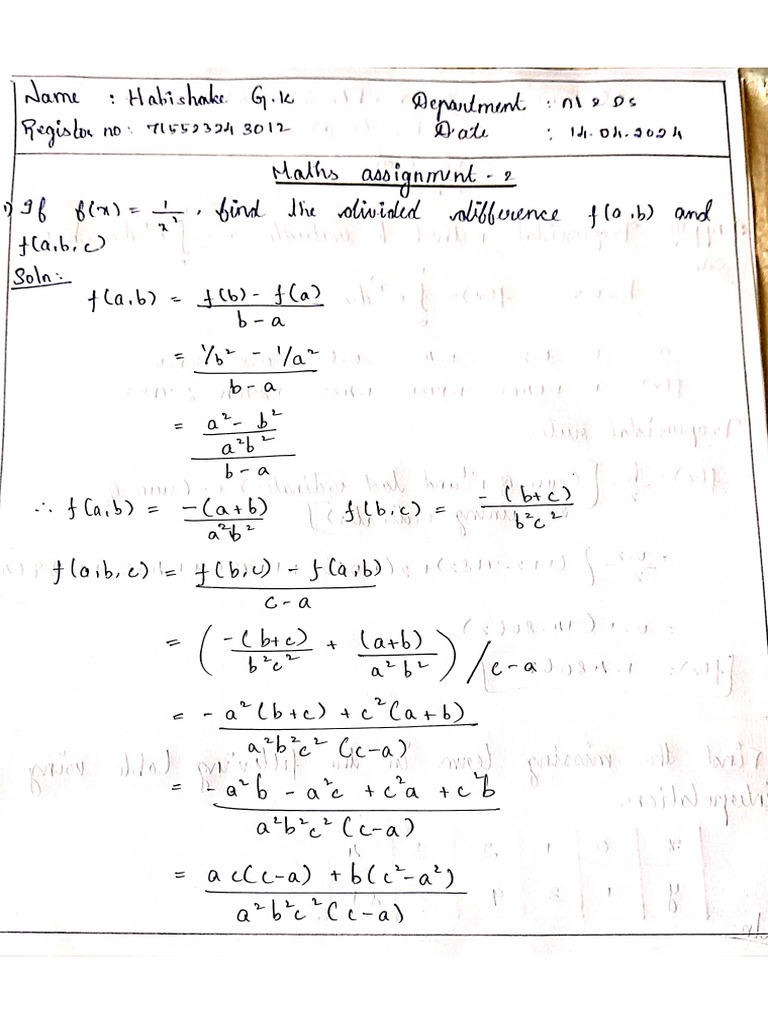 Name : Habishake G.K Department : AI & DS
Register no : 715523243012 Date : 14.04.2024
Maths assignment - 2
1) If f(x) = 1/x², find the divided difference f(a,b) and
f(a,b,c)
Soln:
f(a,b) = f(b) - f(a) / b - a
= 1/b² - 1/a² / b - a
= a² - b² / a²b² / b - a
∴ f(a,b) = -(a+b) / a²b² f(b,c) = -(b+c) / b²c²
f(a,b,c) = f(b,c) - f(a,b) / c - a
= ( -(b+c) / b²c² + (a+b) / a²b² ) / c-a
= -a²(b+c) + c²(a+b) / a²b²c²(c-a)
= -a²b - a²c + c²a + c²b / a²b²c²(c-a)
= ac(c-a) + b(c²-a²) / a²b²c²(c-a)